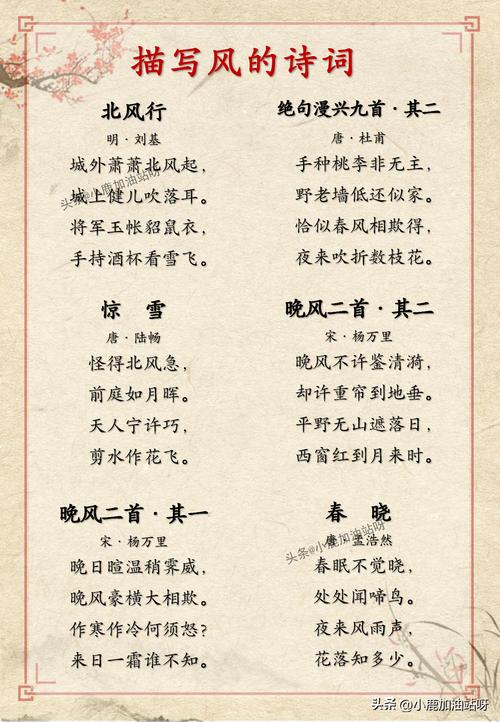 描写风的诗词
北风行
明·刘基
城外萧萧北风起，
城上健儿吹落耳。
将军玉帐貂鼠衣，
手持酒杯看雪飞。
头条@小鹿加油站呀
绝句漫兴九首·其二
唐·杜甫
手种桃李非无主，
野老墙低还似家。
恰似春风相欺得，
夜来吹折数枝花。
惊 雪
唐·陆畅
怪得北风急，
前庭如月晖。
天人宁许巧，
剪水作花飞。
晚风二首·其二
宋·杨万里
晚风不许鉴清漪，
却许重帘到地垂。
平野无山遮落日，
西窗红到月来时。
晚风二首·其一
宋·杨万里
晚日暄温稍霁威，
晚风豪横大相欺。
作寒作冷何须怒？
来日一霜谁不知。
春 晓
唐·孟浩然
头条@小鹿加油站呀
春眠不觉晓，
处处闻啼鸟。
夜来风雨声，
花落知多少。
头条@小鹿加油站呀